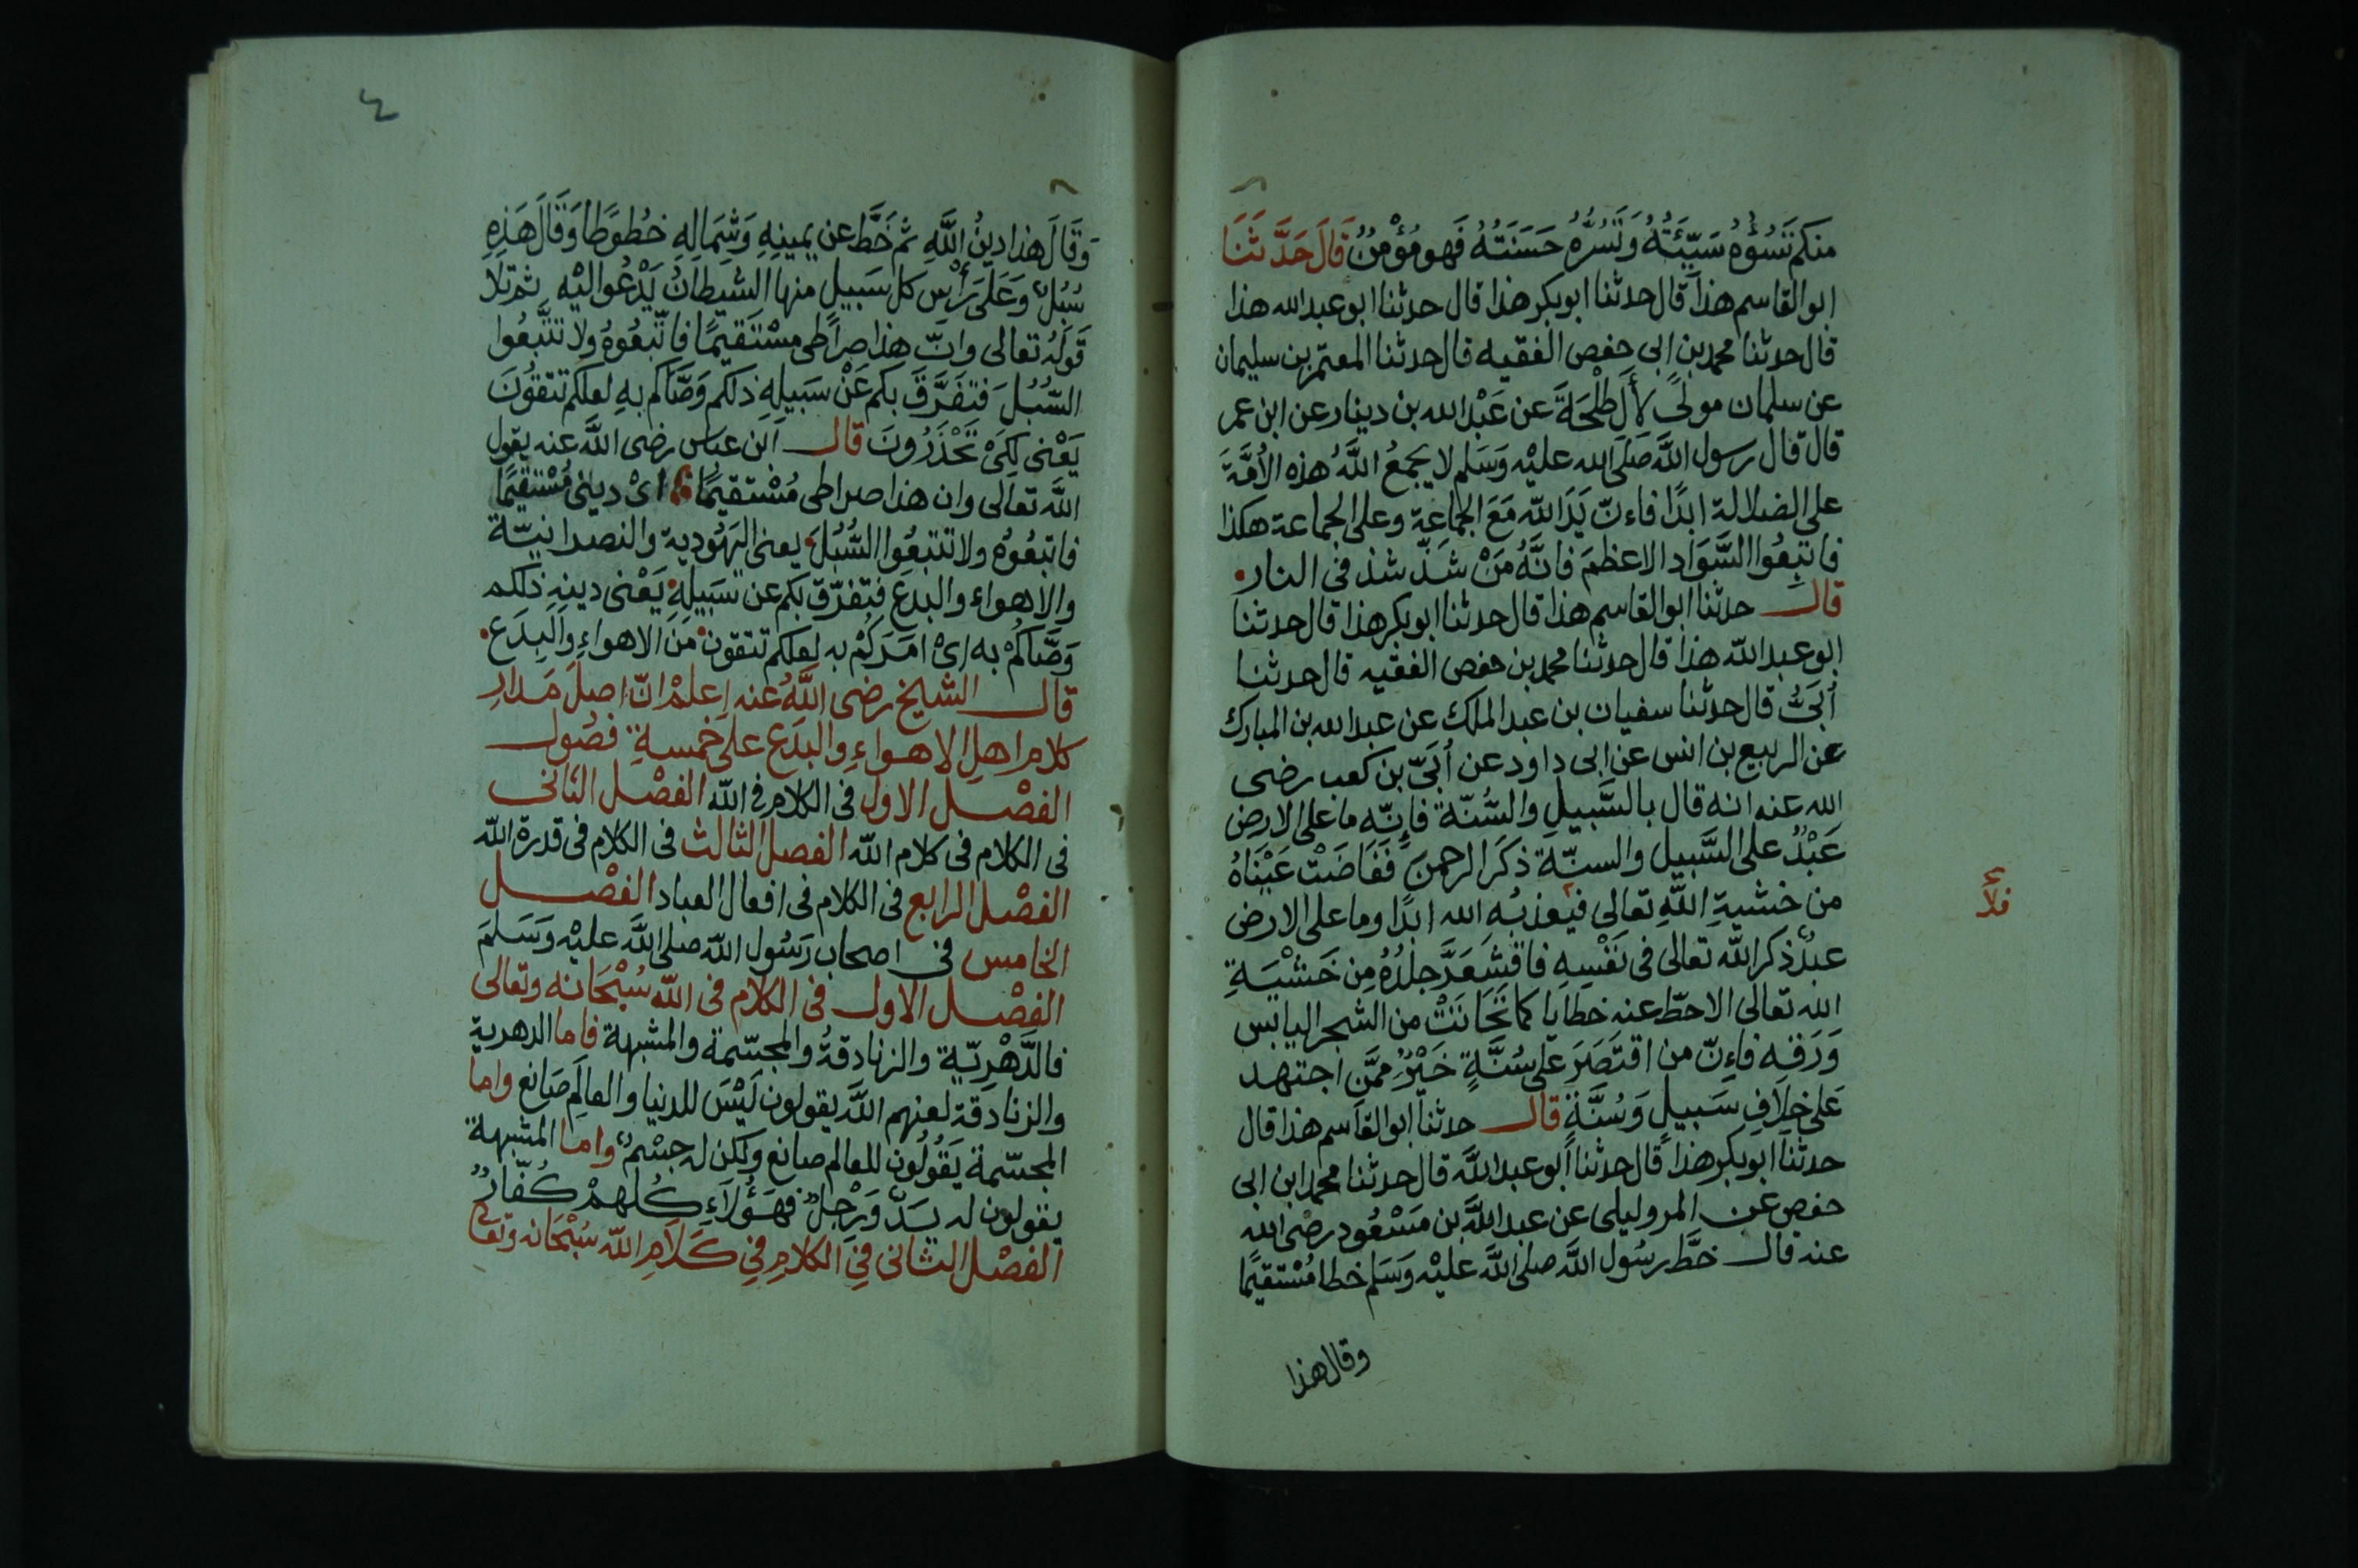 منكم تَسُؤهُ سَيِّئَتُهُ وَتَسُرُّهُ حَسَنَتُهُ فَهو مُؤْمِنٌ قَالَ حَدَّثَنَا
ابو القاسم هذا قال حدثنا ابو بكر هذا قال حدثنا ابو عبد الله هذا
قال حدثنا محمد بن ابى حفص الفقيه قال حدثنا المعتمر بن سليمان
عن سلمان مولىً لآل طَلْحَةَ عن عَبْد الله بن دينار عن ابن عمر
قال قال رسول اللَّه صَلَى الله عليْه وَسَلم لا يجمعُ اللَّهُ هذه الأُمَّةَ
على الضلالة ابدًا فاءنّ يَدَ اللّه مَعَ الجماعة وعلى الجماعة هكذا
فاتبِعُوا السَّوَاد الاعظمَ فانَّهُ مَنْ شذّ شذ فى النار
قال حدثنا ابو القاسم هذا قال حدثنا ابو بكر هذا قال حدثنا
ابو عبد اللّه هذا قال حدثنا محمد بن حفص الفقيه قال حدثنا
أُبَىُّ قال حدثنا سفيان بن عبد الملك عن عبد الله بن المبارك
عن الربيع بن انس عن ابى داود عن أُبَىّ بن كعب رضى
الله عنه انه قال بالسَّبيلِ والسُّنّة فإنّه ما على الارض
عَبْدٌ على السَّبيل والسنّة ذكَرَ الرحمن فَفَاضَتْ عَيْنَاهُ
من خشيةِ اللّهِ تعالى فيعذبُه الله ابدًا وما على الارض
فلا
عبدٌ ذكر اللّه تعالى فى نَفْسِهِ فاقشَعَرَّ جلدُهُ مِن خَشْيَةِ
الله تعالى الاحطّ عنه خطايا كما تَحَاتَتْ من الشجر اليابس
وَرَقه فاءنّ من اقتصَرَ على سُنَّةٍ خَيْرٌ ممَّنِ اجتهد
عَلى خلافِ سَبيلٍ وَسُنَّةٍ قال حدثنا ابو القاسم هذا قال
حدثنا ابو بكر هذا قال حدثنا أبو عبد اللَّه قال حدثنا محمد ابن ابى
حفص عن المروليلى عن عبد اللَّه بن مَسْعُود رضى الله
عنه قال خطَّ رسُول اللَّه صلى اللَّه عليْه وَسَلم خطا مُسْتقيمًا
وقال هذا
٤
وَقَالَ هذا دينُ اللَّهِ ثم خَطَّ عن يمينِهِ وَشِمَالِهِ خطُوطًا وَقَالَ هَذِهِ
سُبُلٌ وَعَلَى رَأْسِ كل سَبيلٍ منها الشيطانُ يَدْعُوا اليْه ثم تلا
قَولهُ تعالى وانّ هذا صِراطى مسْتَقيمًا فاتّبعُوهُ ولا تتَّبعُوا
السُّبُلَ فتفَرَّقَ بكم عَنْ سَبيلهِ ذلكم وَصَّاكم بهِ لعلكم تتقُونَ
يَعْنى لِكَىْ تَحْذَرُونَ قال ابن عباس رضى اللَّه عنه يقول
اللَّه تعالى وان هذا صراطى مُسْتقيمًا اىْ دينى مُسْتقيمًا
فاتبعُوُه ولا تتبعُوا السُّبُلَ يعنى اليَهُودية والنصرانيّة
والاهواء والبدع فتفرّق بكم عن سَبيلهِ يَعْنى دينِهِ ذلكم
وَصَّاكُمْ به اىْ امَرَكُمْ به لعلكم تتقون من الاهواءِ والبِدَع
قال الشيخ رضى اللَّهُ عنه اِعلمْ انّ اصلَ مَدارِ
كلام اهلِ الاهواءِ والبدَع على خمسةِ فصُول
الفصْل الاول فى الكلامِ فى اللّه الفصْل الثانى
فى الكلام فى كلام اللّه الفصل الثالث فى الكلام فى قدرة اللّه
الفصْل الرابع فى الكلام فى افعال العباد الفصْل
الخامس فى اصحاب رَسُول اللّه صلى اللَّه عليْه وَسَلمَ
الفصْل الاول فى الكلام فى اللّه سُبْحَانه وتعالى
فالدَّهْرِيّة والزنادقةُ والمجسّمة والمشبهة فاما الدهرية
والزنادقة لعنهم اللَّه يقولون لَيْسَ للدنيا والعالَمِ صَانع واما
المجسّمة يَقُولُون للعالم صانع ولكن له جسْمٌ واما المشبهة
يقولون له يدٌ وَرِجْلٌ فهَؤُلاَءِ كلهمْ كُفّارٌ
الفصْل الثانى فِى الكلامِ فِى كَلاَمِ اللّه سُبْحَانه وتعالى